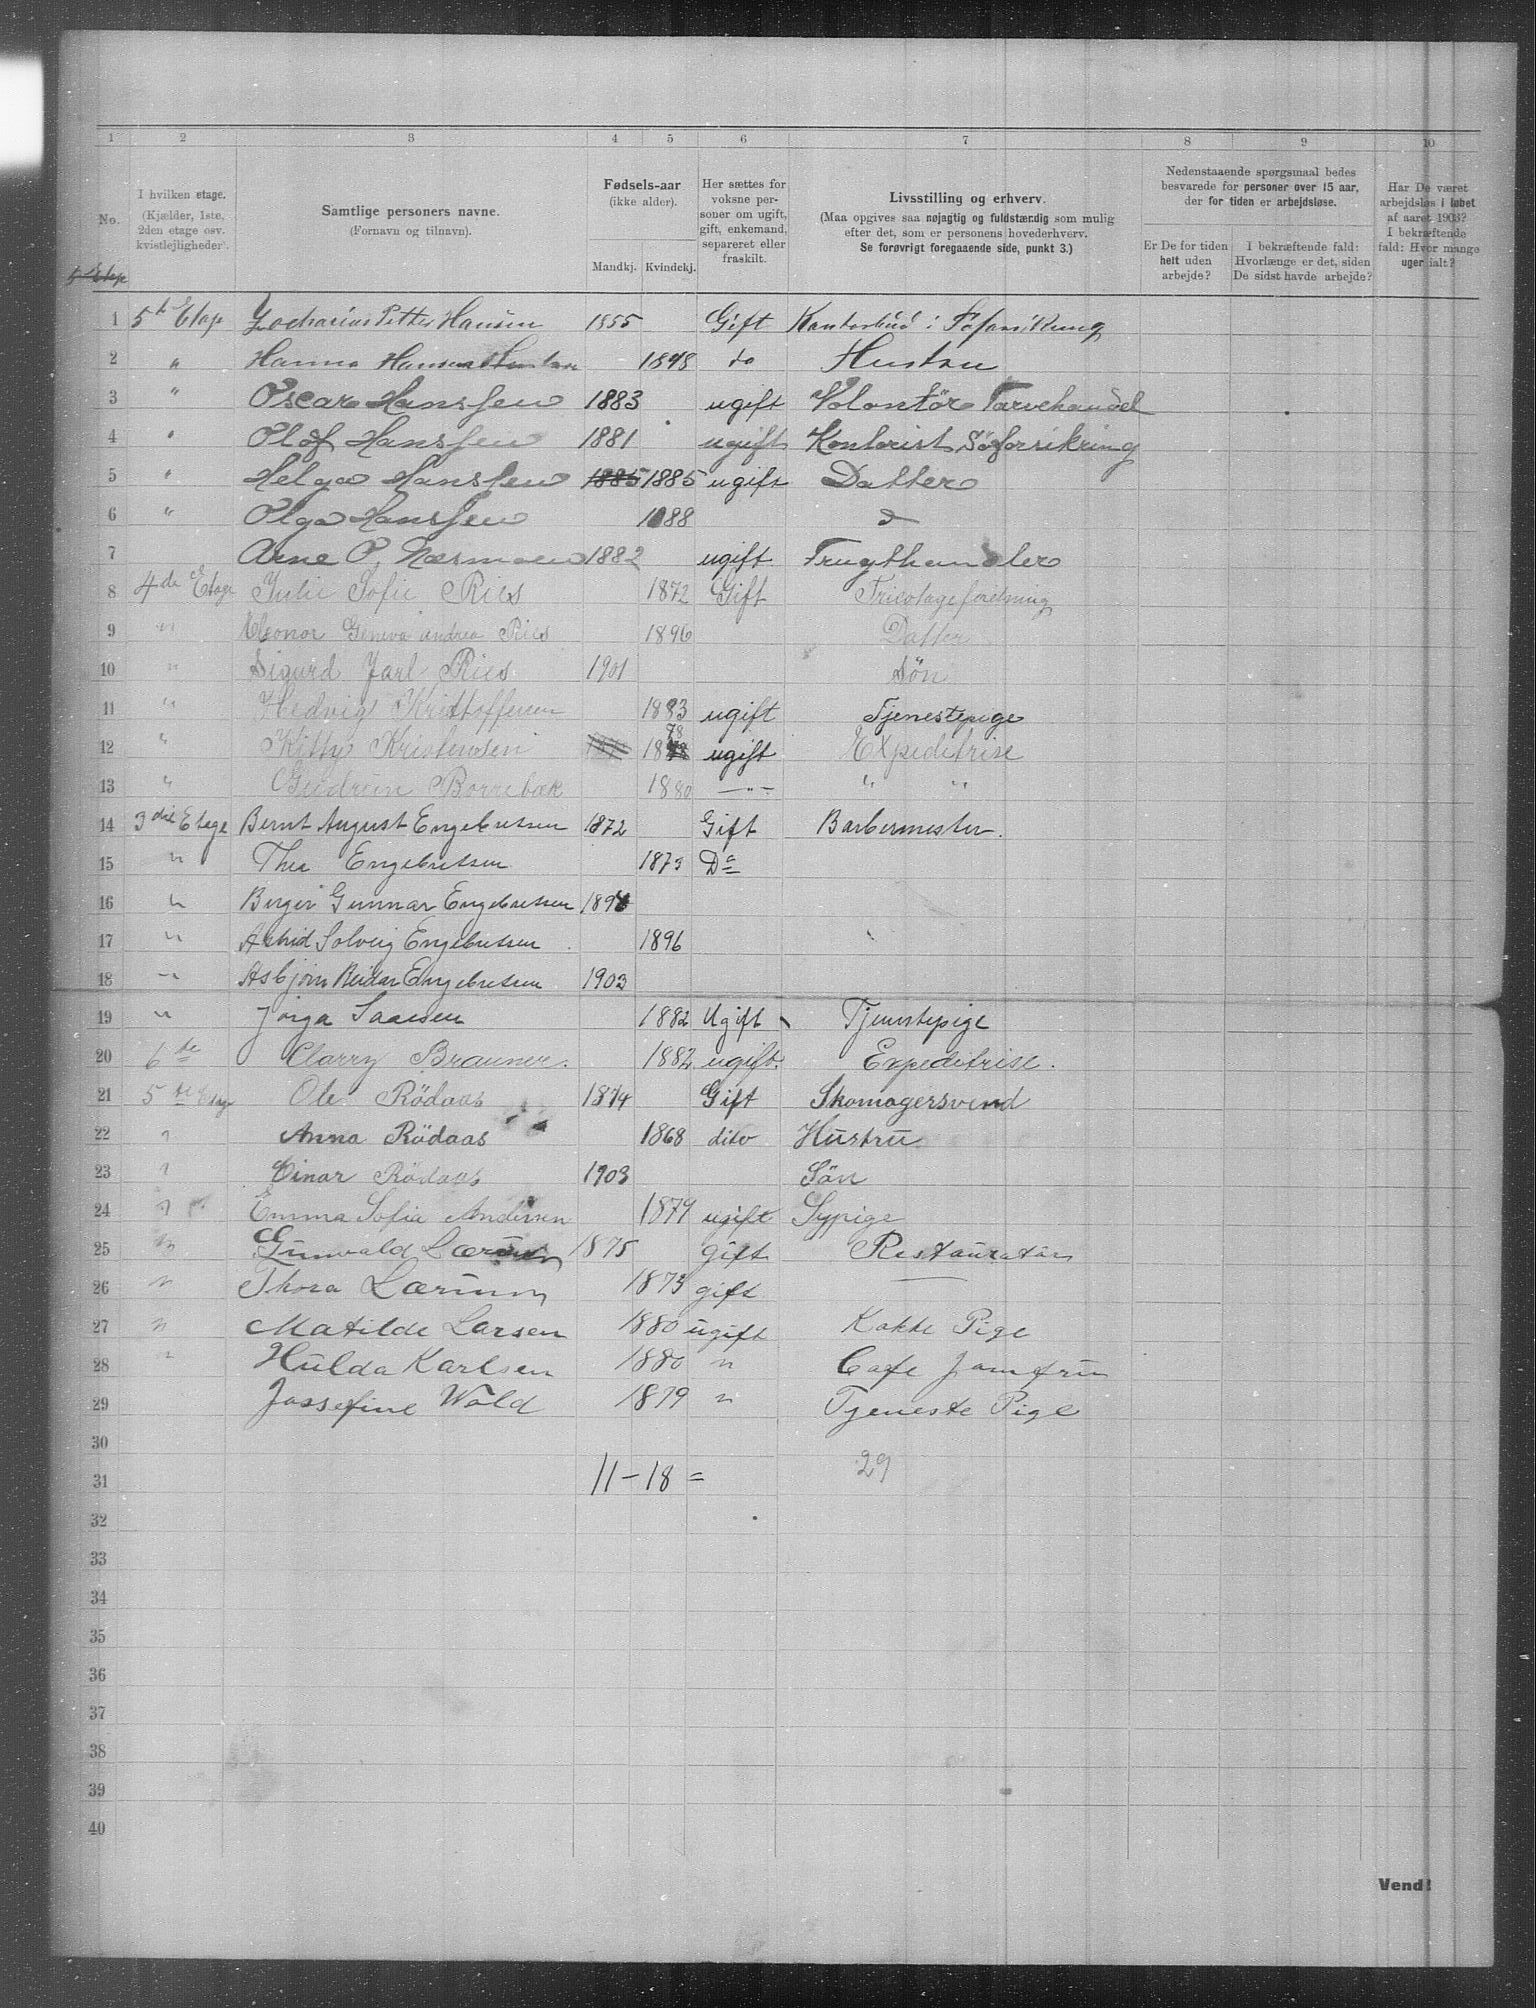 1 2 3 4 5 6 7 8 9 10
No.
I hvilken etage. (Kjælder, 1ste, 2den etage osv. kvistlejligheder).
Samtlige personers navne. (Fornavn og tilnavn).
Fødsels-aar (ikke alder). Mandkj. Kvindekj.
Her sættes for voksne personer om ugift, gift, enkemand, separeret eller fraskilt.
Livsstilling og erhverv. (Maa opgives saa nøjagtig og fuldstændig som mulig efter det, som er personens hovederhverv. Se forøvrigt foregaaende side, punkt 3.)
Nedenstaaende spørgsmaal bedes besvarede for personer over 15 aar, der for tiden er arbejdsløse.
Er De for tiden helt uden arbejde?
I bekræftende fald: Hvorlænge er det, siden De sidst havde arbejde?
Har De været arbejdsløs i løbet af aaret 1903? I bekræftende fald: Hvor mange uger ialt?
5 Etage
1 5te Etage Zacharias Petter Hansen 1855 Gift Kontorbud i
2 " Hanna Hansen 1848 do Hustru
3 " Oscar Hanssen 1883 ugift Volontör Farvehandel
4 " Olaf Hanssen 1881 ugift Kontorist Söforsikring
5 " Helga Hanssen 1885 1885 ugift Datter
6 " Olga Hanssen 1888 d
7 Arne O. Næsmoen 1882 ugift Frugthandler
8 4de Etage Julie Sofie Ries 1872 Gift Tricotageforretning
9 " Eleonor Geneva Andrea Ries 1896 Datter
10 " Sigurd Jarl Ries 1901 Sön
11 " Hedvig Kristoffersen 1883 ugift Tjenestepige
12 " Kitty Kristensen 1878 ugift Expeditrise
13 " Gudrun Borrebæk 1880 —"— " "
14 3die Etage Bernt August Engebretsen 1872 Gift Barbermester.
15 " Thea Engebretsen 1875 Do
16 " Birger Gunnar Engebretsen 1894
17 " Astrid Solveig Engebretsen 1896
18 " Asbjörn Reidar Engebretsen 1903
19 " Jörga Saaesen 1882 Ugift Tjenstepige
20 6te Clarry Brauner. 1882 ugift. Expeditrise.
21 5te Etage Ole Rödaas 1874 Gift Skomagersvend
22 " Anna Rödaas 1868 dito Hustru
23 " Einar Rödaas 1903 Sön
24 " Emma Sofia Andersen 1879 ugift Sypige
25 " Gunvald Lærum 1875 gift Restauratör
26 " Thora Lærum 1873 gift —
27 " Matilde Larsen 1880 ugift Kokke Pige
28 " Hulda Karlsen 1880 " Cafe Jomfru
29 Jossefine Wold 1879 " Tjeneste Pige
30
31 11 – 18 = 29
32
33
34
35
36
37
38
39
40
Vend!